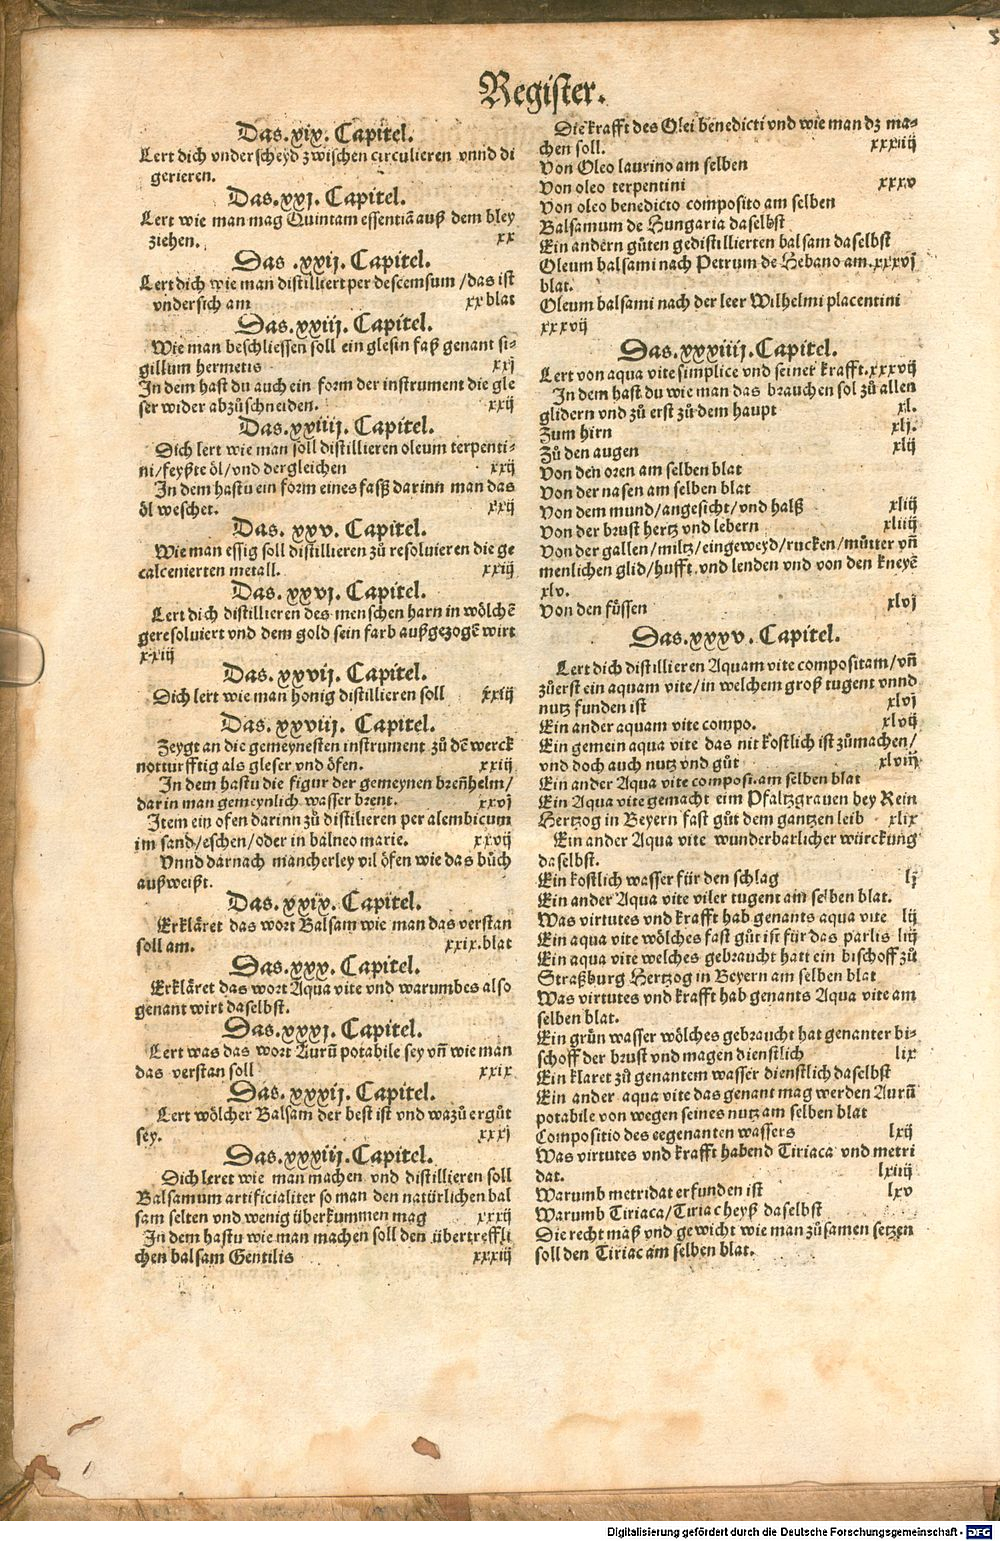 Register.
Das.xix. Capitel.
Lert dich vnderscheyd zwischen circulieren vnnd di
gerieren.
Das.xxj. Capitel.
Lert wie man mag Quintam essentiā auß dem bley
ziehen. xx
Das .xxij. Capitel.
Lert dich wie man distilliert per descensum /das ist
vndersich am xx blat
Das.xxiij. Capitel.
Wie man beschliessen soll ein glesin faß genant si-
gillum hermetis xxj
In dem hast du auch ein form der instrument die gle
ser wider abzůschneiden. xxij
Das.xxiiij. Capitel.
Dich lert wie man soll distillieren oleum terpenti-
ni/feyßte öl/vnd dergleichen xxij
In dem hastu ein form eines fasß darinn man das
öl weschet. xxij
Das. xxv. Capitel.
Wie man essig soll distillieren zů resoluieren die ge
calcenierten metall. xxiij
Das. xxvj. Capitel.
Lert dich distillieren des menschen harn in wölchē
geresoluiert vnd dem gold sein farb außgezogē wirt
xxiij
Das. xxvij. Capitel.
Dich lert wie man honig distillieren soll xxiij
Das. xxviij. Capitel.
Zeygt an die gemeynesten instrument zů dē werck
notturfftig als gleser vnd öfen. xxiij
In dem hastu die figur der gemeynen breñhelm/
darin man gemeynlich wasser brent. xxvj
Item ein ofen darinn zů distilieren per alembicum
im sand/eschen/oder in balneo marie. xxvij
Vnnd darnach mancherley vil öfen wie das bůch
außweißt.
Das. xxix. Capitel.
Erkläret das wort Balsam wie man das verstan
soll am. xxix.blat
Das.xxx. Capitel.
Erkläret das wort Aqua vite vnd warumb es also
genant wirt daselbst.
Das.xxxj. Capitel.
Lert was das wort Aurū potabile sey vñ wie man
das verstan soll xxix
Das.xxxij. Capitel.
Lert wölcher Balsam der best ist vnd wazů er gůt
sey. xxxj
Das.xxxiij.Capitel.
Dich leret wie man machen vnd distillieren soll
Balsamum artificialiter so man den natürlichen bal
sam selten vnd wenig überkummen mag xxxij
In dem hastu wie man machen soll den übertreffli
chen balsam Gentilis xxxiij
Die krafft des Olei benedicti vnd wie man dz ma-
chen soll. xxxiiij
Von Oleo laurino am selben
Von oleo terpentini xxxv
Von oleo benedicto composito am selben
Balsamum de Hungaria daselbst
Ein andern gůten gedistillierten balsam daselbst
Oleum balsami nach Petrum de Hebano am.xxxvj
blat.
Oleum balsami nach der leer Wilhelmi placentini
xxxvij
Das.xxxiiij.Capitel.
Lert von aqua vite simplice vnd seiner krafft.xxxvij
In dem hast du wie man das brauchen sol zů allen
glidern vnd zů erst zů dem haupt xl.
Zum hirn xlj.
Zů den augen xlij
Von den oren am selben blat
Von der nasen am selben blat
Von dem mund/angesicht/vnd halß xliij
Von der brust hertz vnd lebern xliiij
Von der gallen/miltz/eingeweyd/rucken/můtter vñ
menlichen glid/hufft vnd lenden vnd von den kneyē
xlv.
Von den füssen xlvj
Das.xxxv. Capitel.
Lert dich distillieren Aquam vite compositam/vñ
zůerst ein aquam vite/in welchem groß tugent vnnd
nutz funden ist xlvj
Ein ander aquam vite compo. xlvij
Ein gemein aqua vite das nit kostlich ist zůmachen/
vnd doch auch nutz vnd gůt xlviij
Ein ander Aqua vite composi.am selben blat
Ein Aqua vite gemacht eim Pfaltzgrauen bey Rein
Hertzog in Beyern fast gůt dem gantzen leib xlix
Ein ander Aqua vite wunderbarlicher würckung
daselbst.
Ein kostlich wasser für den schlag lj
Ein ander Aqua vite viler tugent am selben blat.
Was virtutes vnd krafft hab genants aqua vite lij
Ein aqua vite wölches fast gůt ist für das parlis liij
Ein aqua vite welches gebraucht hatt ein bischoff zů
Straßburg Hertzog in Beyern am selben blat
Was virtutes vnd krafft hab genants Aqua vite am
selben blat.
Ein grün wasser wölches gebraucht hat genanter bi-
schoff der brust vnd magen dienstlich lix
Ein klaret zů genantem wasser dienstlich daselbst
Ein ander aqua vite das genant mag werden Aurū
potabile von wegen seines nutz am selben blat
Compositio des eegenanten wassers lxij
Was virtutes vnd krafft habend Tiriaca vnd metri
dat. lxiiij
Warumb metridat erfunden ist lxv
Warumb Tiriaca/Tiriac heyß daselbst
Die recht maß vnd gewicht wie man zůsamen setzen
soll den Tiriac am selben blat.
Digitalisierung gefördert durch die Deutsche Forschungsgemeinschaft - DFG